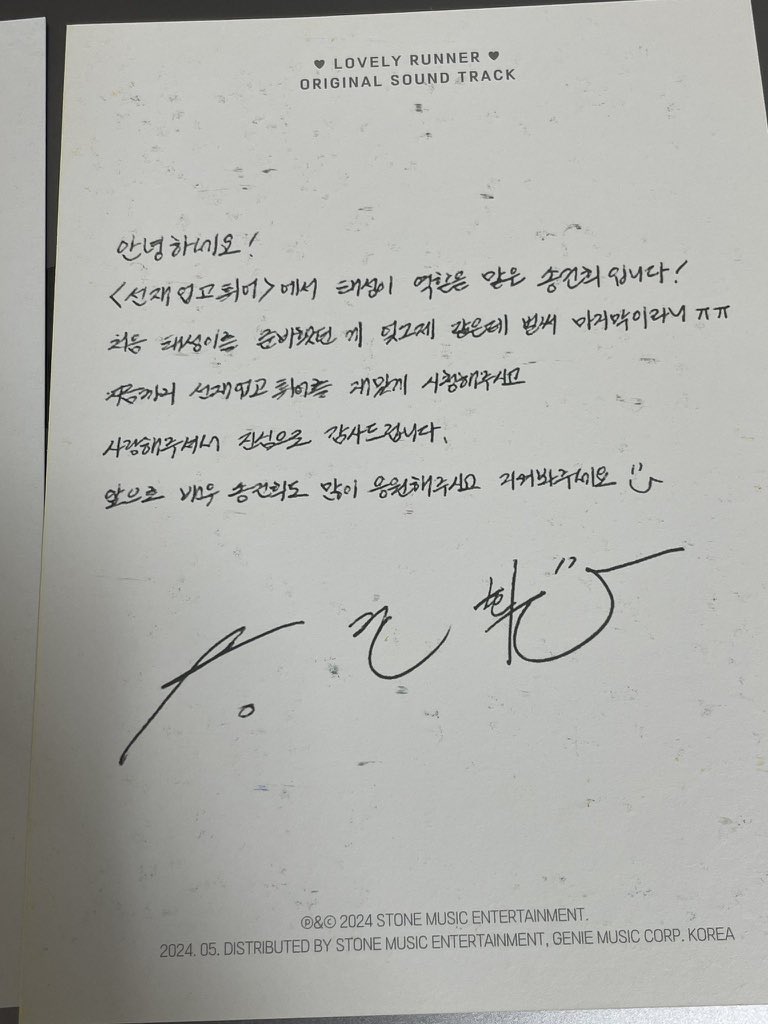 ♥ LOVELY RUNNER ♥
ORIGINAL SOUND TRACK
안녕하세요!
<선재 업고 튀어>에서 태성이 역할을 맡은 송건희 입니다!
처음 태성이를 준비했던 게 엊그제 같은데 벌써 마지막이라니 ㅠㅠ
끝까지 선재 업고 튀어를 재밌게 시청해주시고
사랑해주셔서 진심으로 감사드립니다.
앞으로 배우 송건희도 많이 응원해주시고 지켜봐주세요
송건희
℗&© 2024 STONE MUSIC ENTERTAINMENT.
2024. 05. DISTRIBUTED BY STONE MUSIC ENTERTAINMENT, GENIE MUSIC CORP. KOREA